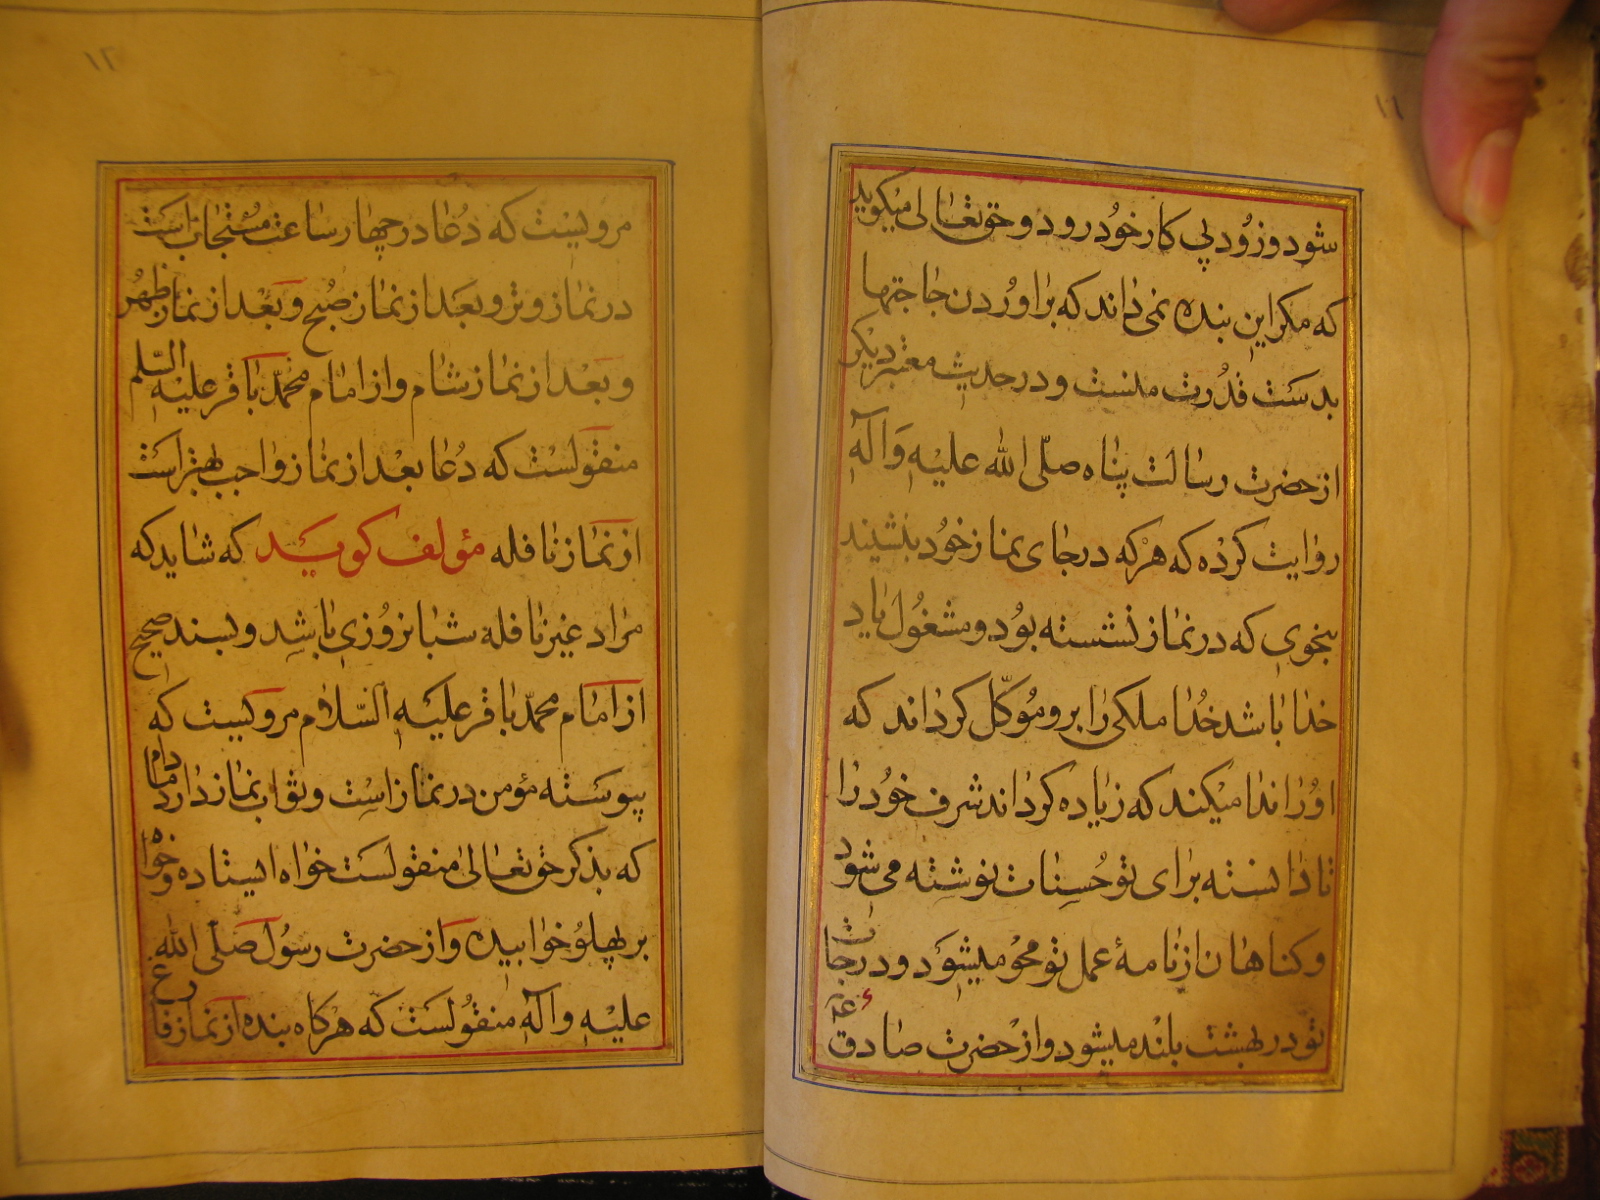 ۱۱
شود و زود پی کار خود رود و حق تعالی میکوید
که مکر این بنده نمی داند که براوردن حاجتها
بدست قدرت منست و در حدیث معتبر دیکر
از حضرت رسالت پناه صلّی الله علیه و آله
روایت کرده که هر که در جای نماز خود بنشیند
بنحوی که در نماز نشسته بود و مشغول یاد
خدا باشد خدا ملکی را برو موکّل کرداند که
او را ندا میکند که زیاده کرداند شرف خود را
تا دانسته برای تو حسنات نوشته می شود
و کناهان از نامهٔ عمل تو محو میشود و درجات
تو در بهشت بلند میشود و از حضرت صادق ع
۱۲
مرویست که دعا در چهار ساعت مستجاب است
در نماز وتر و بعد از نماز صبح و بعد از نماز ظهر
و بعد از نماز شام و از امام محمّد باقر علیه السّلم
منقولست که دعا بعد از نماز واجب بهتر است
از نماز نافله مؤلف کوید که شاید که
مراد غیر نافله شبانروزی باشد و بسند صحیح
از امام محمّد باقر علیه السّلام مرویست که
پیوسته مؤمن در نماز است و ثواب نماز دارد مادام
که بذکر حق تعالی منقولست خواه ایستاده و خواه
بر پهلو خوابیده و از حضرت رسول صلّی الله
علیه و آله منقولست که هرکاه بنده از نماز فارغ